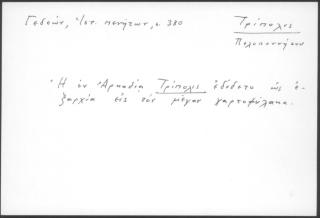 Γεδεών, Ἱστ. πενήτων, σ. 380
Τρίπολις
Πελοποννήσου
Ἡ ἐν Ἀρκαδίᾳ Τρίπολις ἐδίδετο ὡς ἐ-
ξαρχία εἰς τὸν μέγαν χαρτοφύλακα.